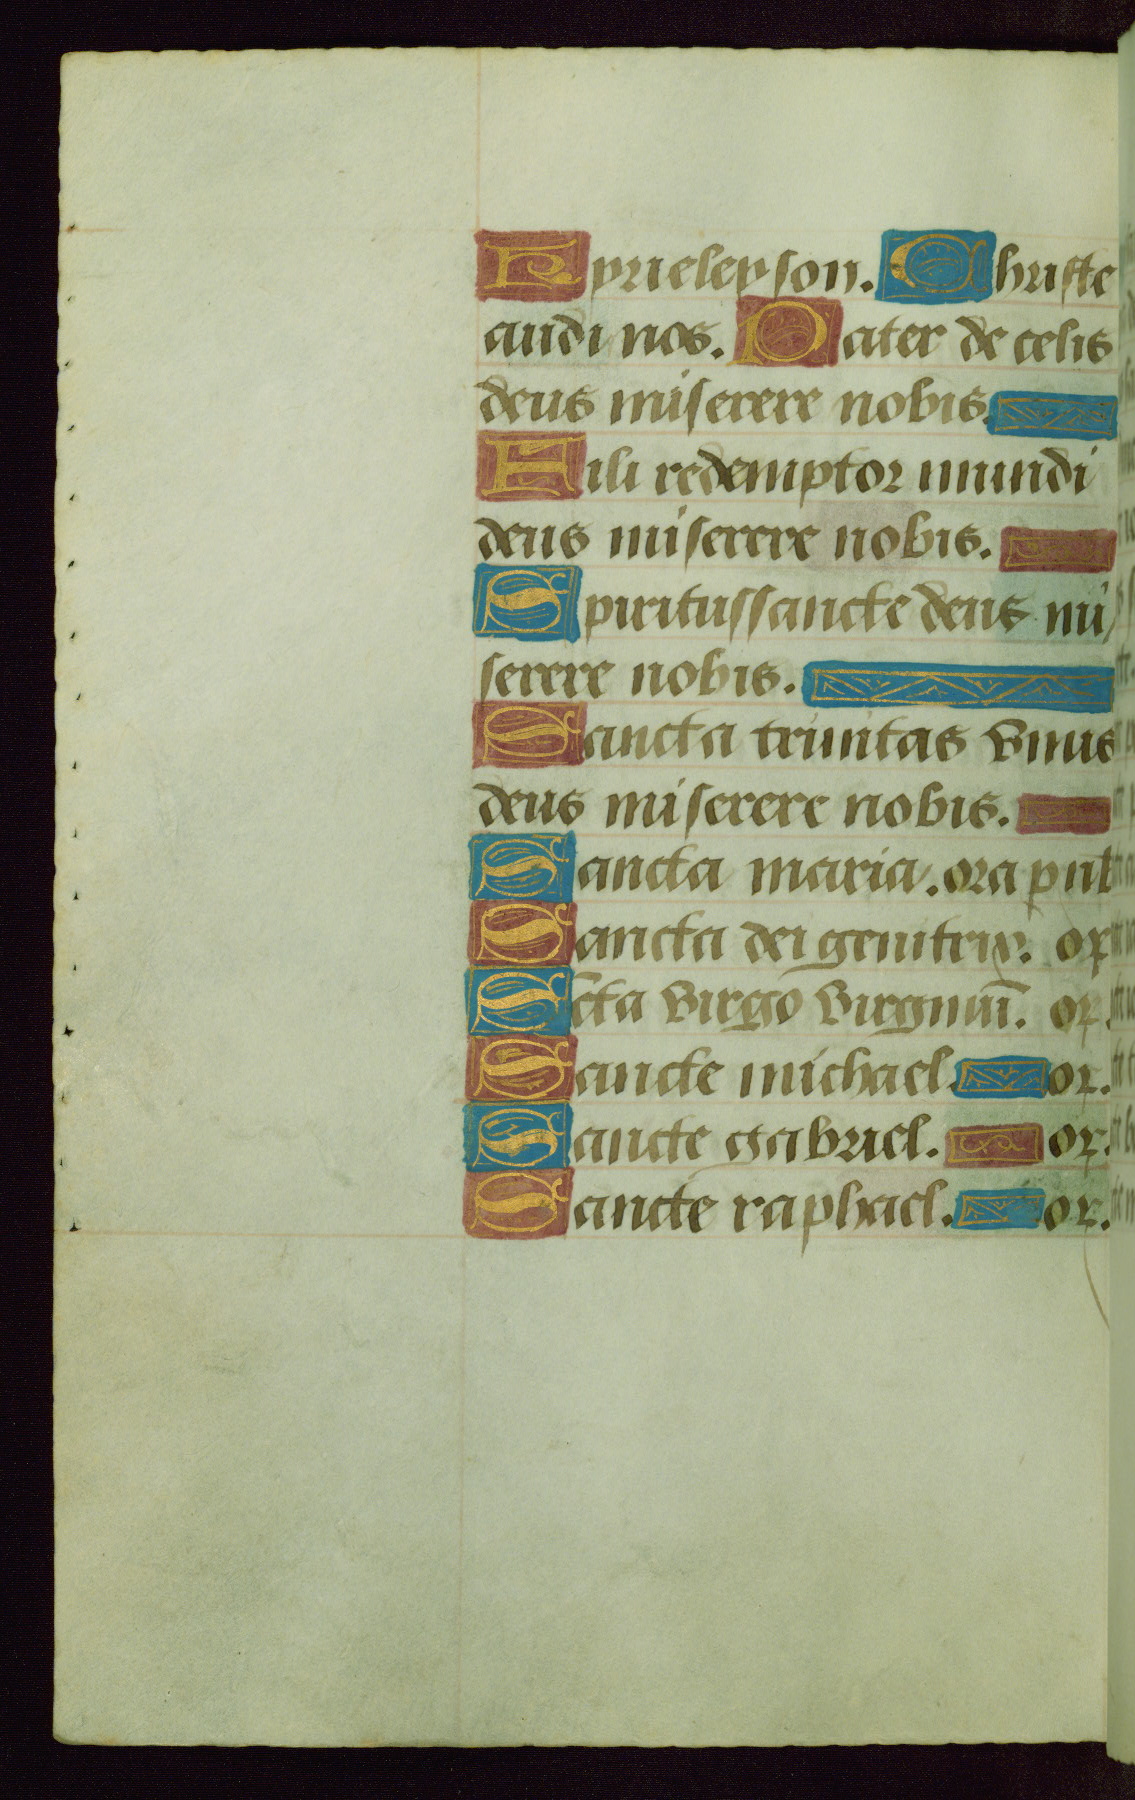 Kyrieleyson. Christe
audi nos. Pater de celis
deus miserere nobis.
Fili redemptor mundi
deus miserere nobis.
Spiritussancte deus mi/
serere nobis.
Sancta trinitas vnus
deus miserere nobis.
Sancta maria. ora p nob
Sancta dei genitrix. or
Scta virgo virginū. or.
Sancte michael. or.
Sancte gabriel. or.
Sancte raphael. or.